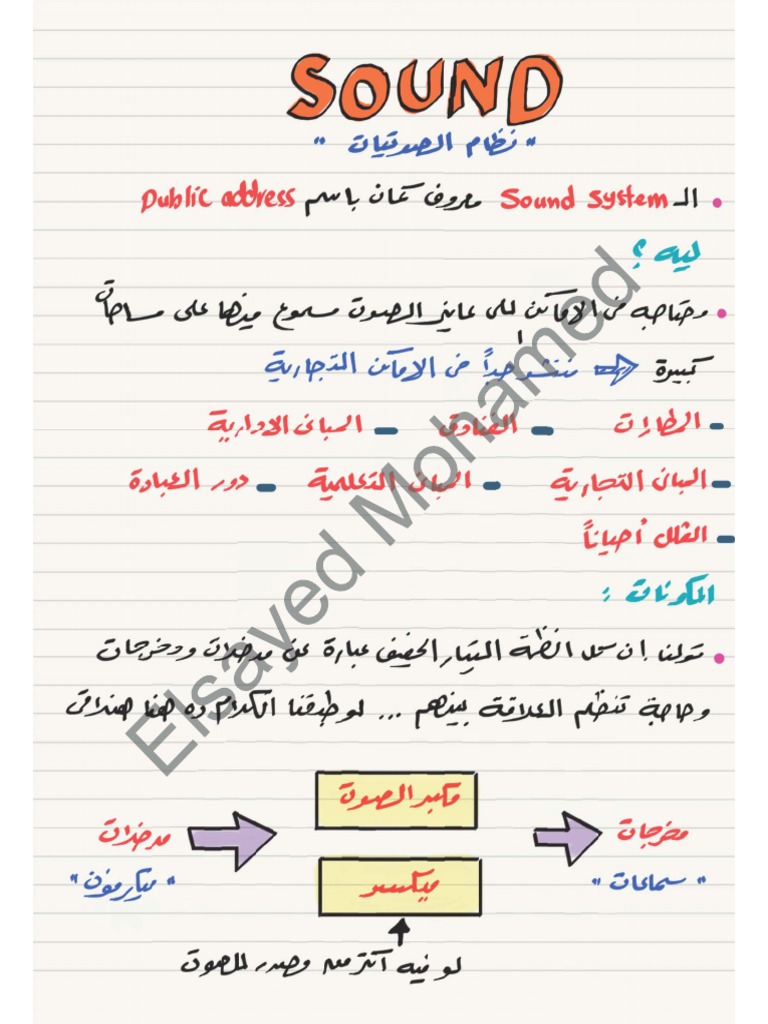 SOUND
" نظام الصوتيات "
• الـ Sound system معروف كمان باسم Public address
ليه ؟
• وحتاجه في الاماكن اللي عايز الصوت مسموع فيها على مساحات
كبيرة ⇐ منتشر جداً في الاماكن التجارية
- المطارات - الفنادق - المبانى الادارية
- المبانى التجارية - المبانى التعلمية - دور العبادة
- الفلل أحياناً
المكونات :
• قولنا إن كل انظمة التيار الخفيف عبارة عن مدخلات ومخرجات
وحاجة تنظم العلاقة بينهم ... لو طبقنا الكلام ده هنا هنلاقى
مكبر الصوت
مدخلات
مخرجات
" ميكرفون "
ميكسر
" سماعات "
لو فيه اكثر من مصدر للصوت
Elsayed Mohamed